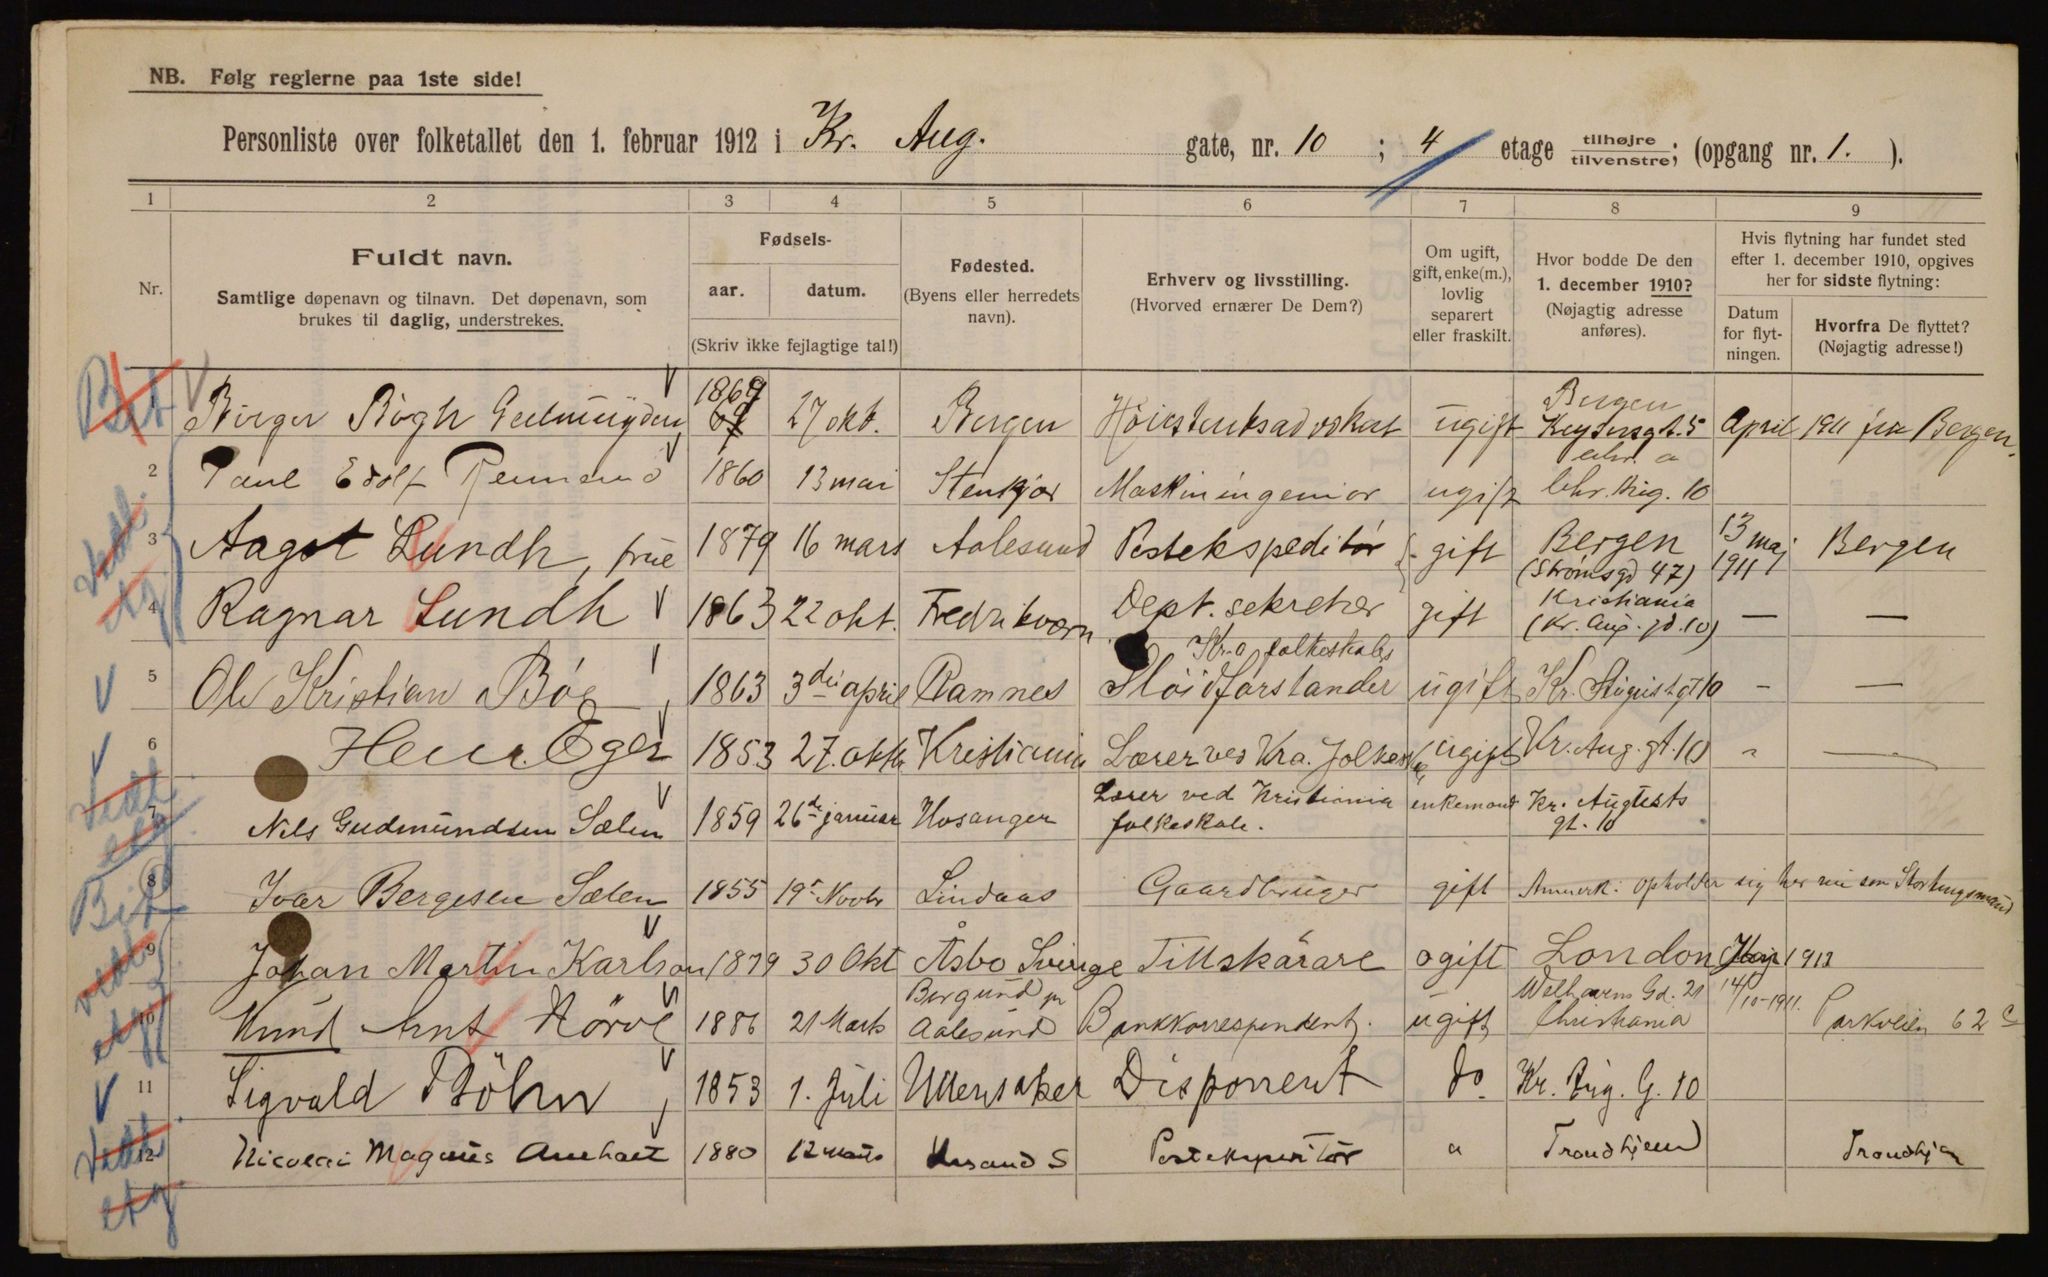 NB. Følg reglerne paa 1ste side!
Personliste over folketallet den 1. februar 1912 i Kr. Aug. gate, nr. 10 ; 4 etage tilhøjre tilvenstre; (opgang nr. 1. ).
1 2 3 4 5 6 7 8 9
Nr.
Fuldt navn.
Samtlige døpenavn og tilnavn. Det døpenavn, som
brukes til daglig, understrekes.
Fødsels-
aar. datum.
(Skriv ikke fejlagtige tal!)
Fødested.
(Byens eller herredets
navn).
Erhverv og livsstilling.
(Hvorved ernærer De Dem?)
Om ugift,
gift, enke(m.),
lovlig
separert
eller fraskilt.
Hvor bodde De den
1. december 1910?
(Nøjagtig adresse
anføres).
Hvis flytning har fundet sted
efter 1. december 1910, opgives
her for sidste flytning:
Datum
for flyt-
ningen.
Hvorfra De flyttet?
(Nøjagtig adresse!)
Birger Bøgh Geelmuyden 1869 27 okt. Bergen Höiesteretsadvokat ugift Bergen April 1911 fra Bergen.
2 Paul Edolf 1860 13 mai Stenkjær Maskiningeniør ugift 10
3 Aagot Lundh, frue 1879 16 mars Aalesund Postekspeditør gift Bergen (Strømsgd 47) 13 maj 1911 Bergen
4 Ragnar Lundh 1863 22 okt. Fredriksværn Dept. sekretær gift Kristiania (Kr. Aug. gd. 10) — —
5 Ole Kristian Bøe 1863 3die april Ramnes Kr.a folkeskoles Sløidforstander ugift Kr. Augustgt 10 - —
6 Henr. Eger 1853 27. oktbr Kristiania Lærer ved Kra. Folkesk. ugift Kr. Aug. gt. 10 " —
7 Nils Gudmundsen Sælen 1859 26de januar Hosanger Lærer ved Kristiania folkeskole. enkemand Kr. Augusts gt. 10
8 Ivar Bergesen Sælen 1855 19 Novbr Lindaas Gaardbruger gift Anmerk: opholder sig her nu som Stortingsmand
9 Johan Martin Karlson 1879 30 Okt Åsbo Sverige Tillskärare ogift London 1912
10 Knud Arnt Hörve 1886 21 Marts Borgund pr Aalesund Bankkorrespondent. ugift Welhavens Gd. 21 Christiania 14/10-1911. Parkveien 62 c
11 Sigvald Böhn 1853 1. Juli Ullensaker Disponent do Kr. Aug. G. 10
12 Nicolai Magnus 1880 12 Krsand S Postekspeditør " Trondhjem Trondhjem